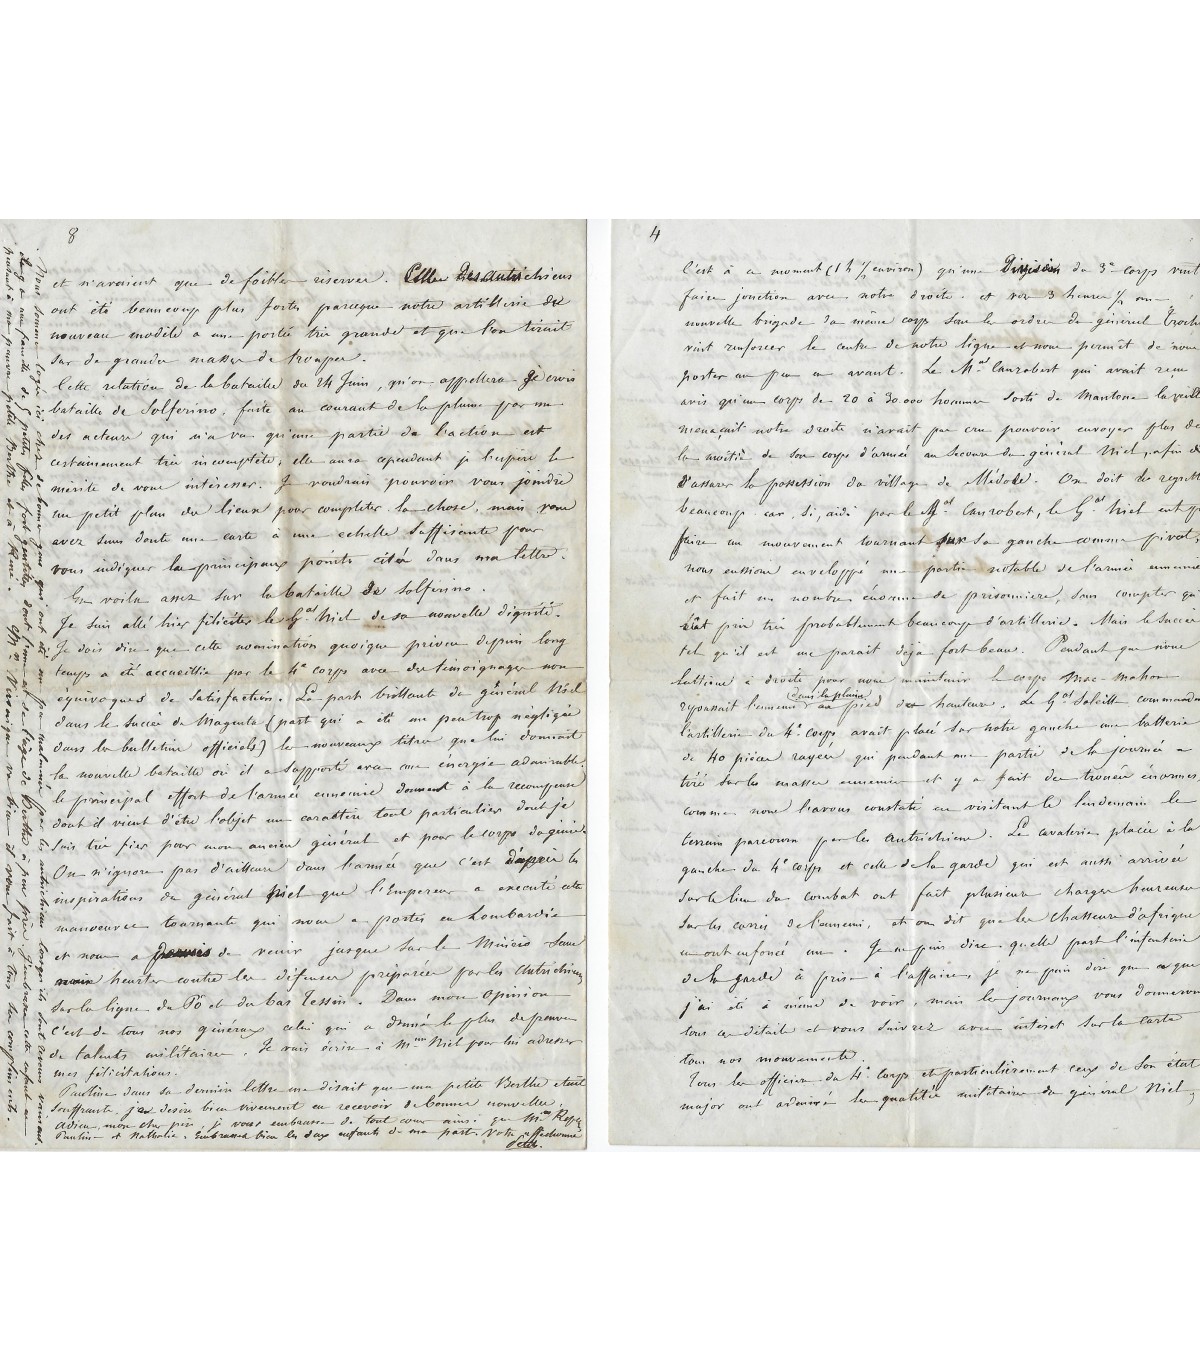 8
et n'avaient que de faibles réserves. Celles Des autrichiens
ont été beaucoup plus fortes parceque notre artillerie du
nouveau modèle a une portée très grande et que l'on tirait
sur de grandes masses de troupes.
Cette relation de la bataille du 24 Juin, qu'on appellera Je crois
bataille de Solferino, faite au courant de la plume par un
des acteurs qui n'a vu qu'une partie de l'action est
certainement très incomplète, elle aura cependant je l'espère le
mérite de vous intéresser. Je voudrais pouvoir vous joindre
un petit plan des lieux pour completer la chose, mais vous
avez sans doute une carte à une echelle suffisante pour
vous indiquer les principaux points cités dans ma lettre.
En voila assez sur la bataille de Solferino.
Je suis allé hier féliciter le Gal Niel de sa nouvelle dignité.
Je dois dire que cette nomination quoique prévue depuis long
temps a été accueillie par le 4e corps avec des témoignages non
équivoques de satisfaction. La part brillante du général Niel
dans le succès de Magenta (part qui a été un peu trop négligée
dans les bulletins officiels) les nouveaux titres que lui donnait
la nouvelle bataille où il a supporté avec une energie admirable
le principal effort de l'armée ennemie donnent à la recompense
dont il vient d'être l'objet un caractère tout particulier dont je
suis très fier pour mon ancien général et pour le corps du génie
On n'ignore pas d'ailleurs dans l'armée que c'est d'après les
inspirations du général Niel que l'Empereur a executé cette
manoeuvre tournante qui nous a portés en Lombardie
et nous a permis de venir jusque sur le Mincio sans
nous heurter contre les défenses préparées par les Autrichiens
sur la ligne du Pô et du bas Tessin. Dans mon opinion
c'est de tous nos généraux celui qui a donné le plus de preuves
de talents militaires. Je vais écrire à Mme Niel pour lui adresser
mes félicitations.
Pauline dans sa dernière lettre me disait que ma petite Berthe etait
souffrante je desire bien vivement en recevoir de bonnes nouvelles.
Adieu, mon cher père, je vous embrasse de tout coeur ainsi que Mme
Pauline et Nathalie. Embrassez bien les deux enfants de ma part. Votre affectionné
Nous sommes logés ici chez de bonnes gens qui ont été un peu malmenés par les autrichiens lorsqu'ils sont revenus vers
Il y a une famille de 5 petites filles fort gentilles dont une de l'âge de Berthe à peu près. J'embrasse cette enfant en
pensant à ma pauvre petite Berthe et à René. Mr va bien il vous fait à tous ses compliments.
4
C'est à ce moment (1 h ½ environ) qu'une Division du 3e corps vint
faire jonction avec notre droite. et vers 3 heures ½ une
nouvelle brigade du même corps sous les ordres du général Trochu
vint renforcer le centre de notre ligne et nous permit de nous
porter un peu en avant. Le Mal Canrobert qui avait reçu
avis qu'un corps de 20 à 30.000 hommes sorti de Mantoue la veille
menaçait notre droite n'avait pas cru pouvoir envoyer plus de
la moitié de son corps d'armée au secours du général Niel, afin de
s'assurer la possession du village de Médole. On doit le regretter
beaucoup car, si, aidé par le Mal Canrobert, le Gal Niel eut pu
faire un mouvement tournant sur sa gauche comme pivot,
nous eussions enveloppé une partie notable de l'armée ennemie
et fait un nombre énorme de prisonniers, sans compter qu'
eût pris très probablement beaucoup d'artillerie. Mais le succès
tel qu'il est me parait déjà fort beau. Pendant que nous
luttions à droite pour nous maintenir le corps Mac-Mahon
repoussait l'ennemi dans la plaine au pied des hauteurs. Le Gal Soleille commandant
l'artillerie du 4e corps avait placé sur notre gauche une batterie
de 40 pièces rayées qui pendant une partie de la journée a
tiré sur les masses ennemies et y a fait des trouées énormes
comme nous l'avons constaté en visitant le lendemain le
terrain parcouru par les Autrichiens. La cavalerie placée à la
gauche du 4e corps et celle de la garde qui est aussi arrivée
sur le lieu du combat ont fait plusieurs charges heureuses
sur les carrés de l'ennemi, et on dit que les chasseurs d'afrique
en ont enfoncé un. Je ne puis dire quelle part l'infanterie
de la garde a prise à l'affaire, je ne puis dire que ce que
j'ai été à même de voir, mais les journaux vous donneront
tous ces détails et vous suivrez avec intérêt sur la carte
tous nos mouvements.
Tous les officiers du 4e corps et particulièrement ceux de son état
major ont admiré les qualités militaires du général Niel,